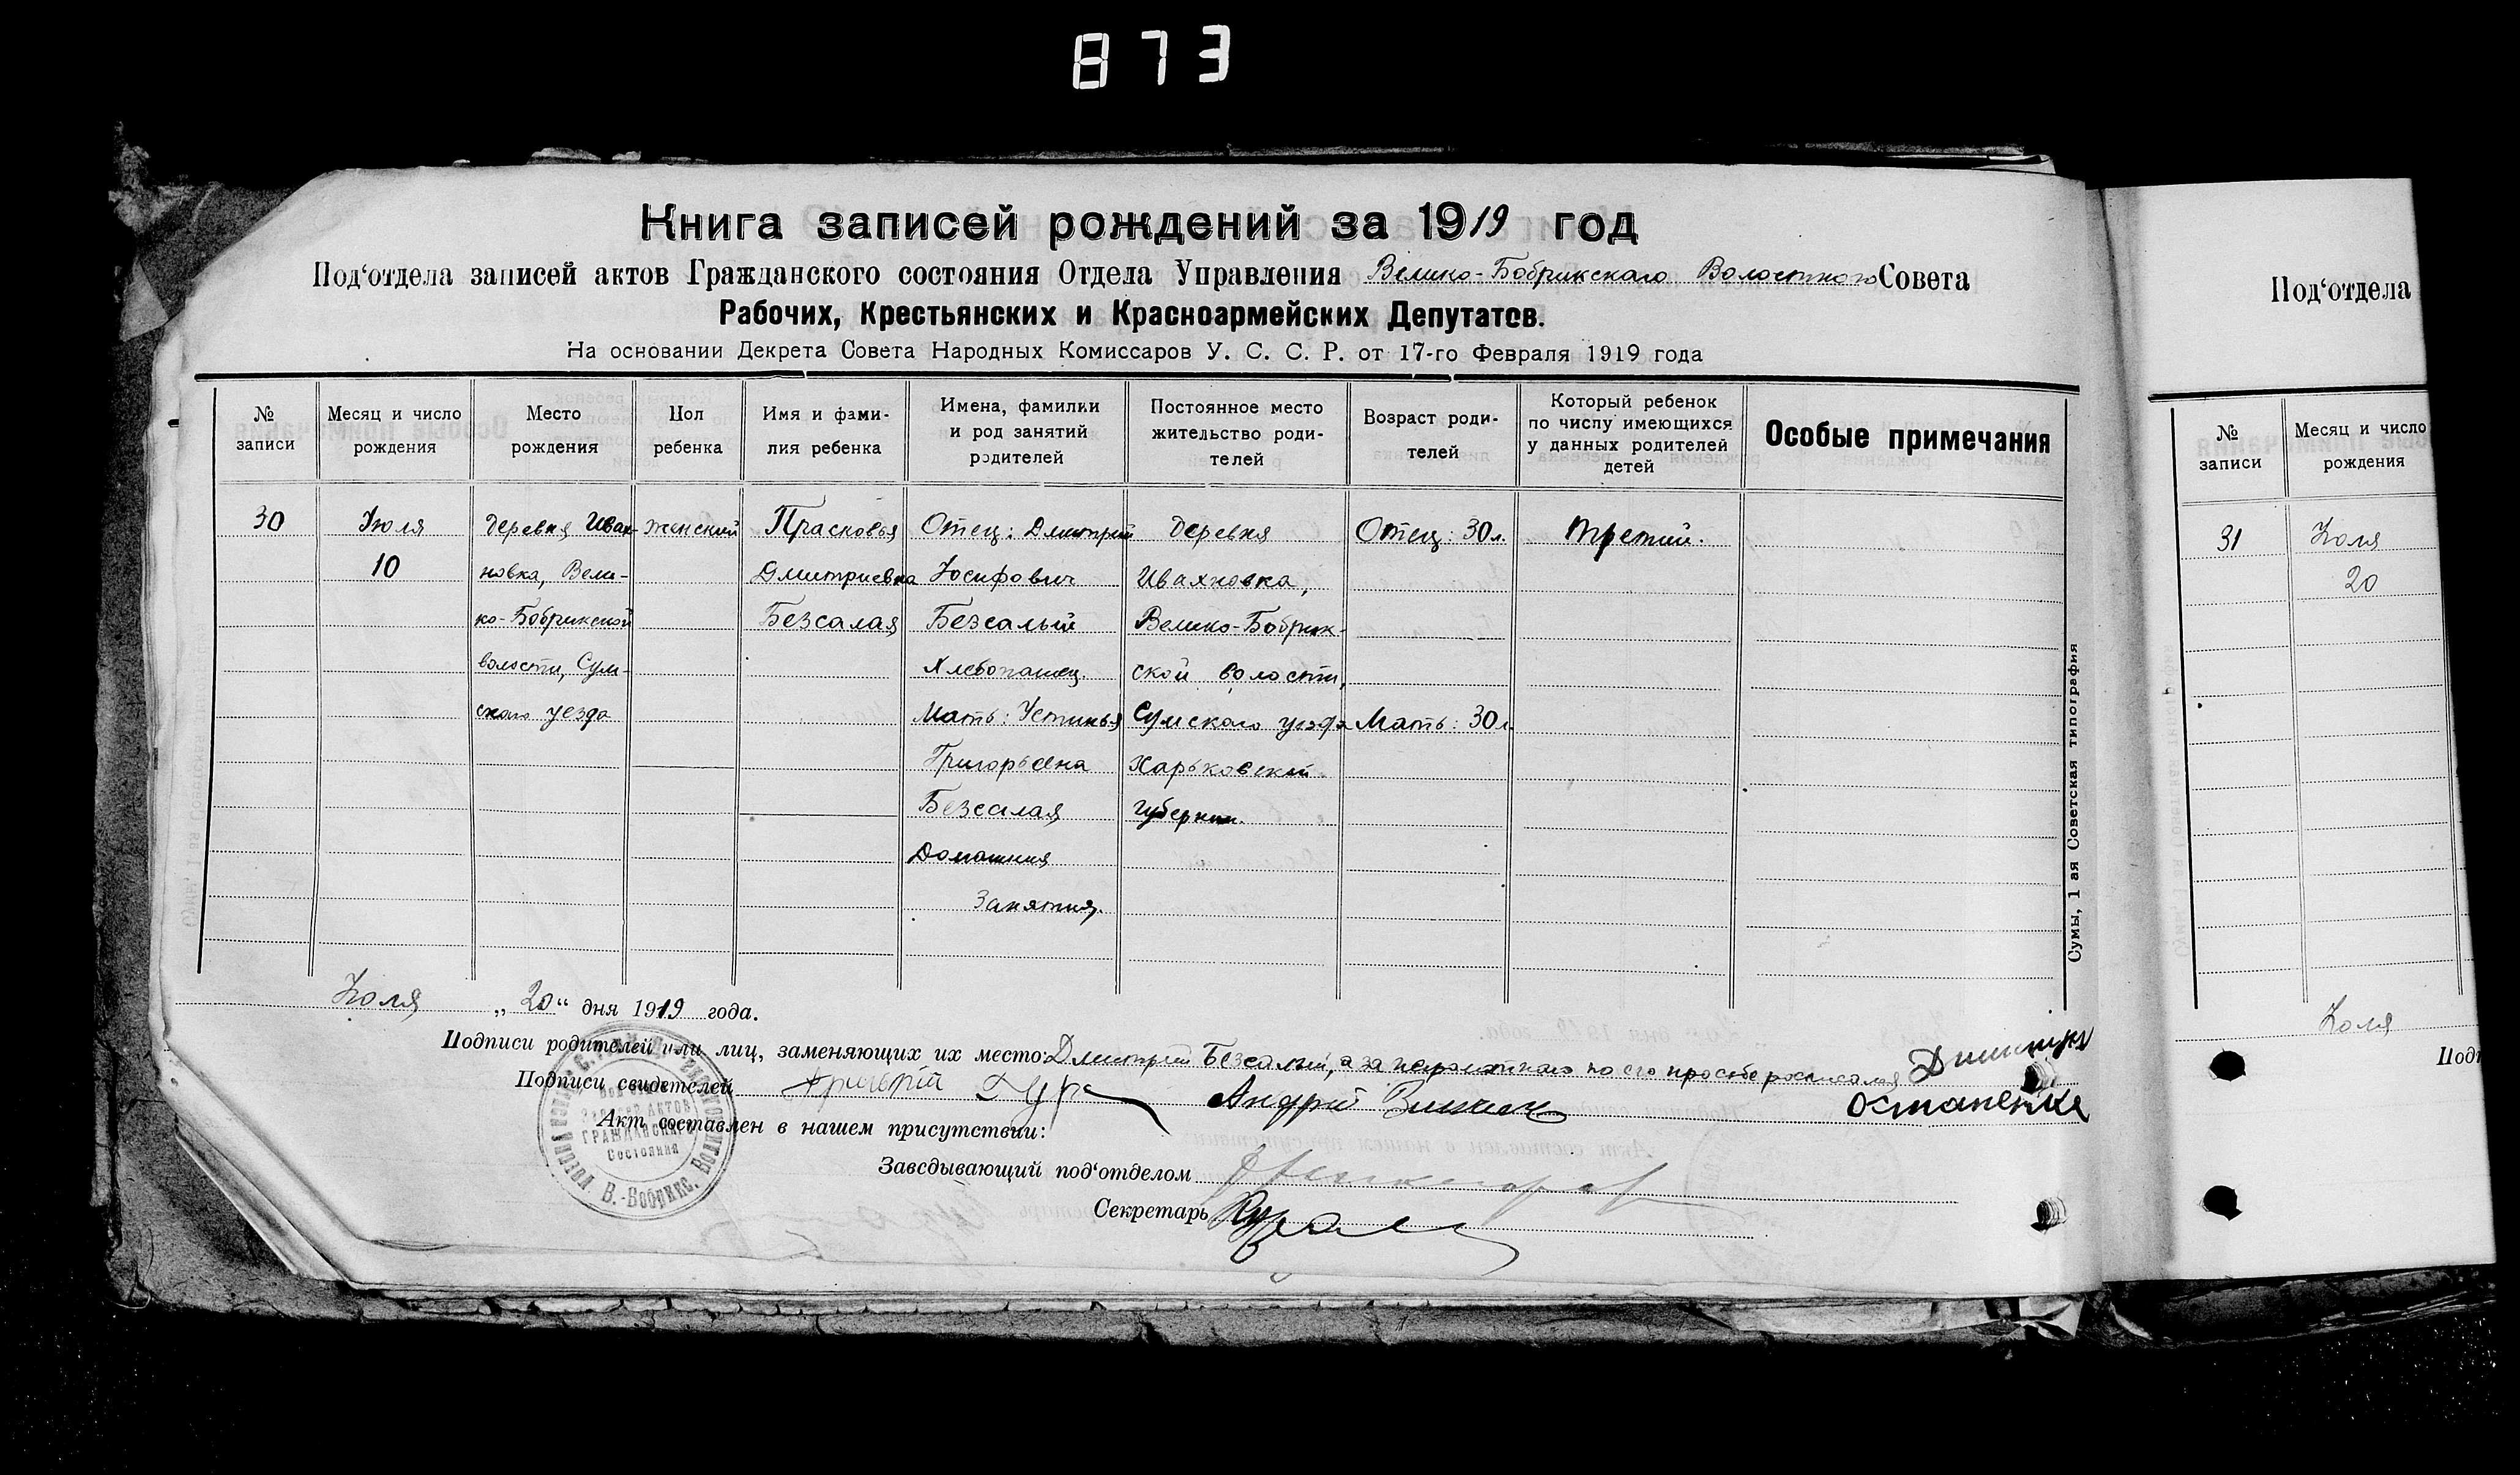 873
Книга записей рождений за 1919 год
Под‘отдела записей актов Гражданского состояния Отдела Управления Велико-Бобрикскаго Волостного Совета
Рабочих, Крестьянских и Красноармейских Депутатов.
На основании Декрета Совета Народных Комиссаров У. С. С. Р. от 17-го Февраля 1919 года
№ записи
Месяц и число рождения
Место рождения
Пол ребенка
Имя и фамилия ребенка
Имена, фамилии и род занятий родителей
Постоянное место жительство родителей
Возраст родителей
Который ребенок по числу имеющихся у данных родителей детей
Особые примечания
30
Июля
10
деревня Ивах-
новка, Вели-
ко-Бобрикской
волости, Сум-
скаго уезда
женский
Прасковья
Дмитриевна
Безсалая
Отец: Дмитрий
Иосифович
Безсалый
Хлебопашец.
Мать: Устинья
Григорьевна
Безсалая
Домашния
Занятия.
деревня
Ивахновка,
Велико-Бобрик-
ской волости,
Сумскаго уезда
Харьковской
губернии.
Отец: 30 л.
Мать: 30 л.
третий.
Сумы, 1 ая Советская типография
Июля „20“ дня 1919 года.
Подписи родителей или лиц, заменяющих их место: Дмитрий Безсалый, а за неграмотнаго по его просьбе росписался Дмитрий
Остапенко
Подписи свидетелей Григорій Гура Андрій
Акт составлен в нашем присутствии:
Заведывающий под‘отделом
Секретарь
Актов
Гражданскаго
Состояния
В.-Бобрикс.
Под‘отдела
№ записи
Месяц и число рождения
31
Июля
20
Июля
Подп